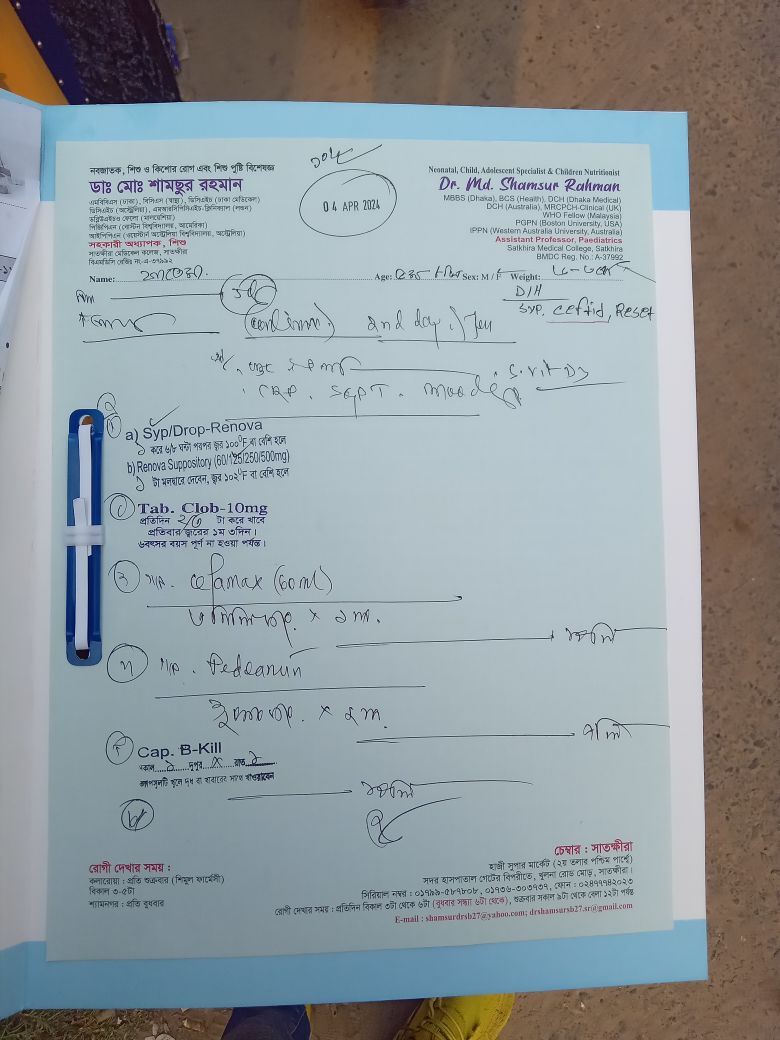 নবজাতক, শিশু ও কিশোর রোগ এবং শিশু পুষ্টি বিশেষজ্ঞ
ডাঃ মোঃ শামছুর রহমান
এমবিবিএস (ঢাকা), বিসিএস (স্বাস্থ্য), ডিসিএইচ (ঢাকা মেডিকেল)
ডিসিএইচ (অস্ট্রেলিয়া), এমআরসিপিসিএইচ-ক্লিনিক্যাল (লন্ডন)
ডব্লিউএইচও ফেলো (মালয়েশিয়া)
পিজিপিএন (বোস্টন বিশ্ববিদ্যালয়, আমেরিকা)
আইপিপিএন (ওয়েস্টার্ন অস্ট্রেলিয়া বিশ্ববিদ্যালয়, অস্ট্রেলিয়া)
সহকারী অধ্যাপক, শিশু
সাতক্ষীরা মেডিকেল কলেজ, সাতক্ষীরা
বিএমডিসি রেজিঃ নং-এ-৩৭৯৯২
04 APR 2024
Neonatal, Child, Adolescent Specialist & Children Nutritionist
Dr. Md. Shamsur Rahman
MBBS (Dhaka), BCS (Health), DCH (Dhaka Medical)
DCH (Australia), MRCPCH-Clinical (UK)
WHO Fellow (Malaysia)
PGPN (Boston University, USA)
IPPN (Western Australia University, Australia)
Assistant Professor, Paediatrics
Satkhira Medical College, Satkhira
BMDC Reg. No.: A-37992
Name: Age: Sex: M / F Weight:
D/H
Syp. Ceftid, Reset
2nd day
CRP. SGPT.
a) Syp/Drop-Renova
১ করে ৬/৮ ঘন্টা পরপর জ্বর ১০০°F বা বেশি হলে
b) Renova Suppository (60/125/250/500mg)
১ টা মলদ্বারে দেবেন, জ্বর ১০২°F বা বেশি হলে
Tab. Clob-10mg
প্রতিদিন ২/৩ টা করে খাবে
প্রতিবার জ্বরের ১ম ৩দিন।
৬বৎসর বয়স পূর্ণ না হওয়া পর্যন্ত।
Cefamax (60ml)
Cap. B-Kill
সকাল ১ দুপুর x রাত ১
ক্যাপসুলটি খুলে দুধ বা খাবারের সাথে খাওয়াবেন
রোগী দেখার সময় :
কলারোয়া : প্রতি শুক্রবার (শিমুল ফার্মেসী)
বিকাল ৩-৫টা
শ্যামনগর : প্রতি বুধবার
চেম্বার : সাতক্ষীরা
হাজী সুপার মার্কেট (২য় তলার পশ্চিম পার্শ্বে)
সদর হাসপাতাল গেটের বিপরীতে, খুলনা রোড মোড়, সাতক্ষীরা।
সিরিয়াল নম্বর : ০১৭৯৯-৫৮৭৮০৮, ০১৭৩৬-৩০৩৭৩৭, ফোন : ০২৪৭৭৭৪২০২৩
রোগী দেখার সময় : প্রতিদিন বিকাল ৩টা থেকে ৬টা (বুধবার সন্ধ্যা ৬টা থেকে), শুক্রবার সকাল ৯টা থেকে বেলা ১২টা পর্যন্ত
E-mail : shamsurdrsb27@yahoo.com; drshamsursb27.sr@gmail.com